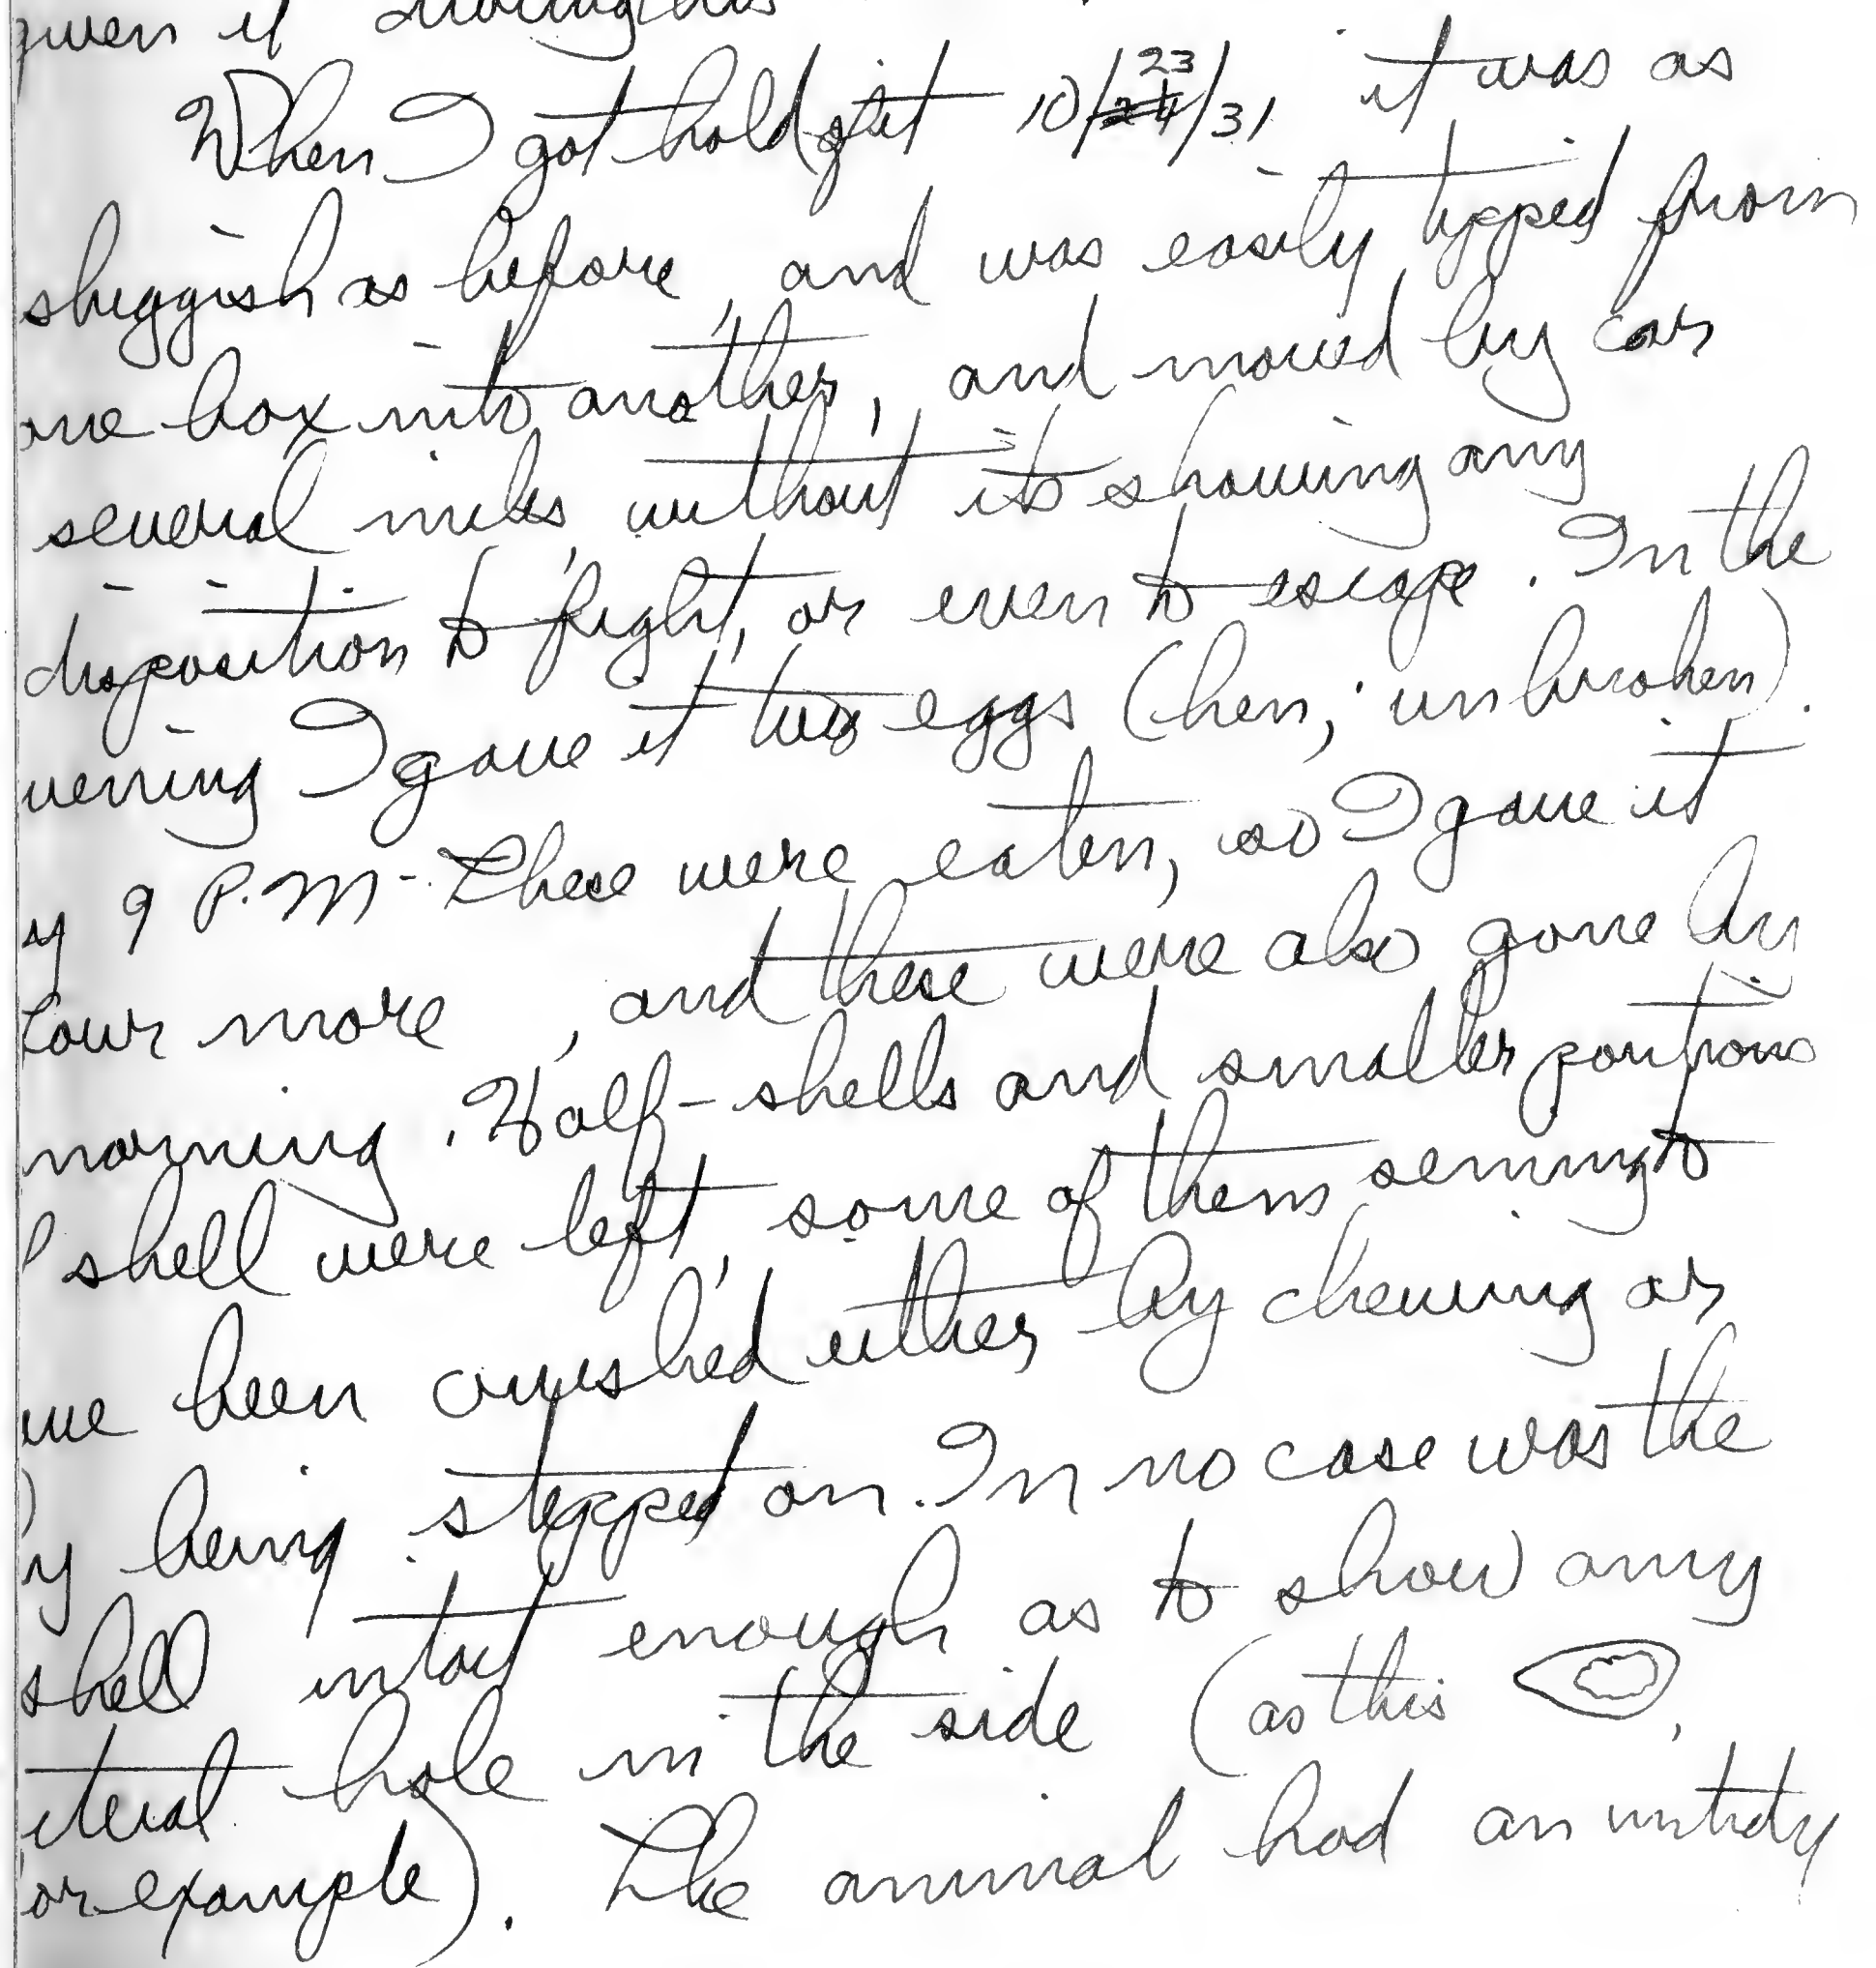 given it
When I got hold of it 10/23/31 it was as
sluggish as before, and was easily tipped from
one box into another, and moved by car
several miles, without its showing any
disposition to fight, or even to escape. In the
vening I gave it two eggs (hen; unbroken).
y 9 P.M. These were eaten, so I gave it
four more, and these were also gone by
morning. Half-shells and smaller portions
f shell were left, some of them seeming to
ave been crushed either by chewing or
by being stepped on. In no case was the
shell intact enough as to show any
ateral hole in the side (as this ,
for example). The animal had an untidy